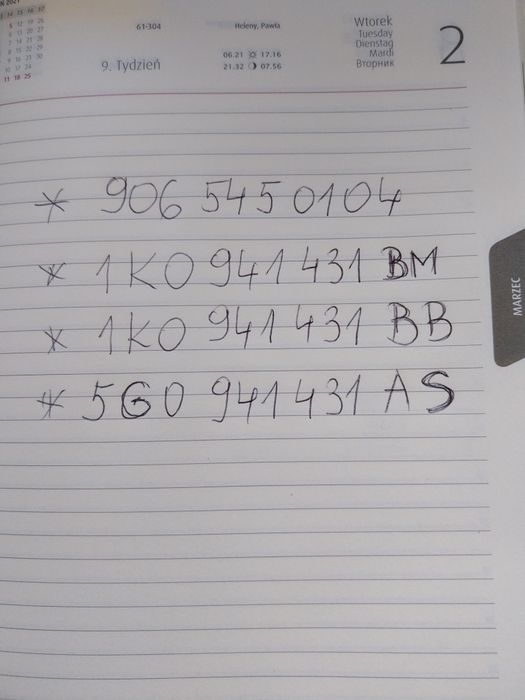 61-304
Heleny, Pawła
Wtorek
Tuesday
Dienstag
Mardi
Вторник
2
9. Tydzień
06.21 17.16
21.32 07.56
* 906 545 0104
* 1K0 941 431 BM
* 1K0 941 431 BB
* 5G0 941 431 AS
MARZEC